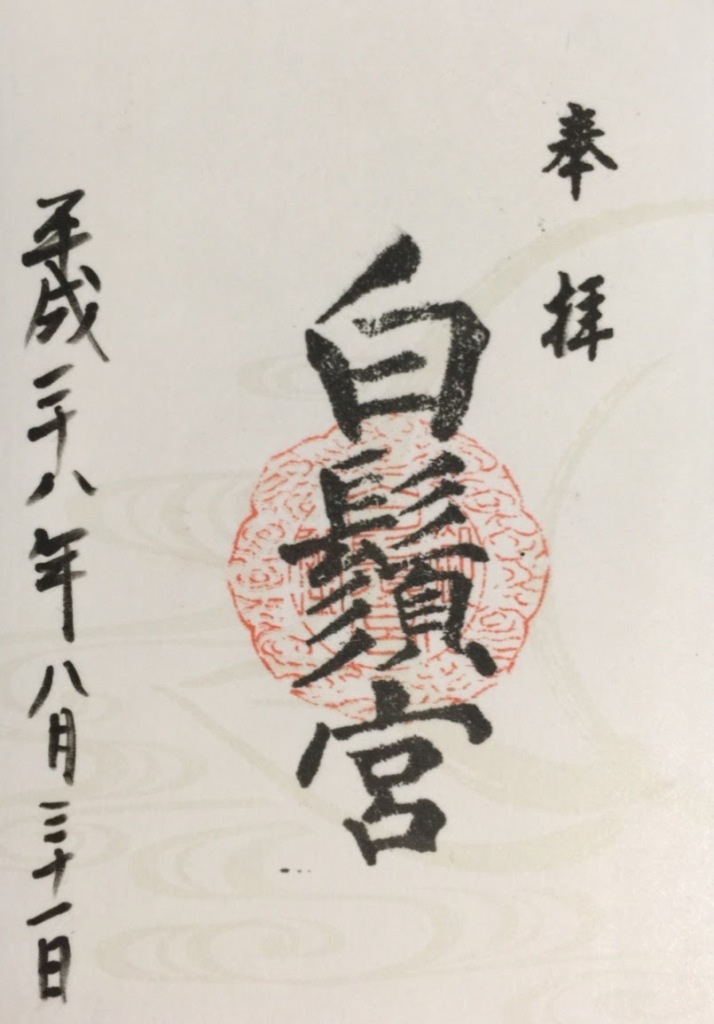 奉拝
白鬚宮
平成二十八年八月三十一日